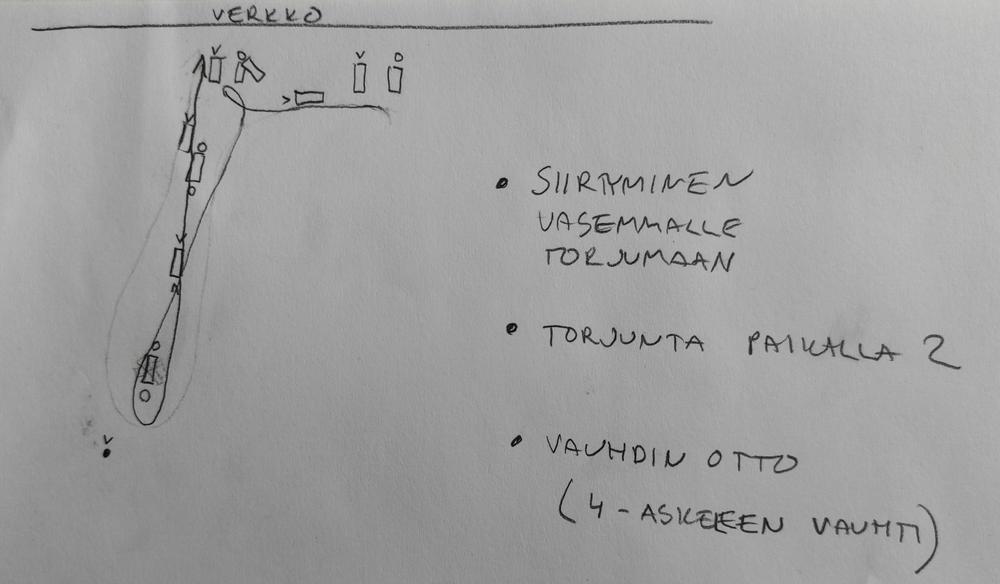 VERKKO
• SIIRTYMINEN
VASEMMALLE
TORJUMAAN
• TORJUNTA PAIKALLA 2
• VAUHDIN OTTO
(4-ASKELEEN VAUHTI)